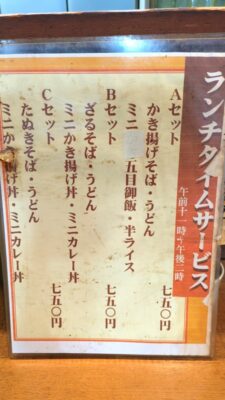 ランチタイムサービス
午前十一時〜午後三時
Aセット
かき揚げそば・うどん
ミニ 五目御飯・半ライス
七五〇円
Bセット
ざるそば・うどん
ミニかき揚げ丼・ミニカレー丼
七五〇円
Cセット
たぬきそば・うどん
ミニか 揚げ丼・ミニカレー丼
七五〇円